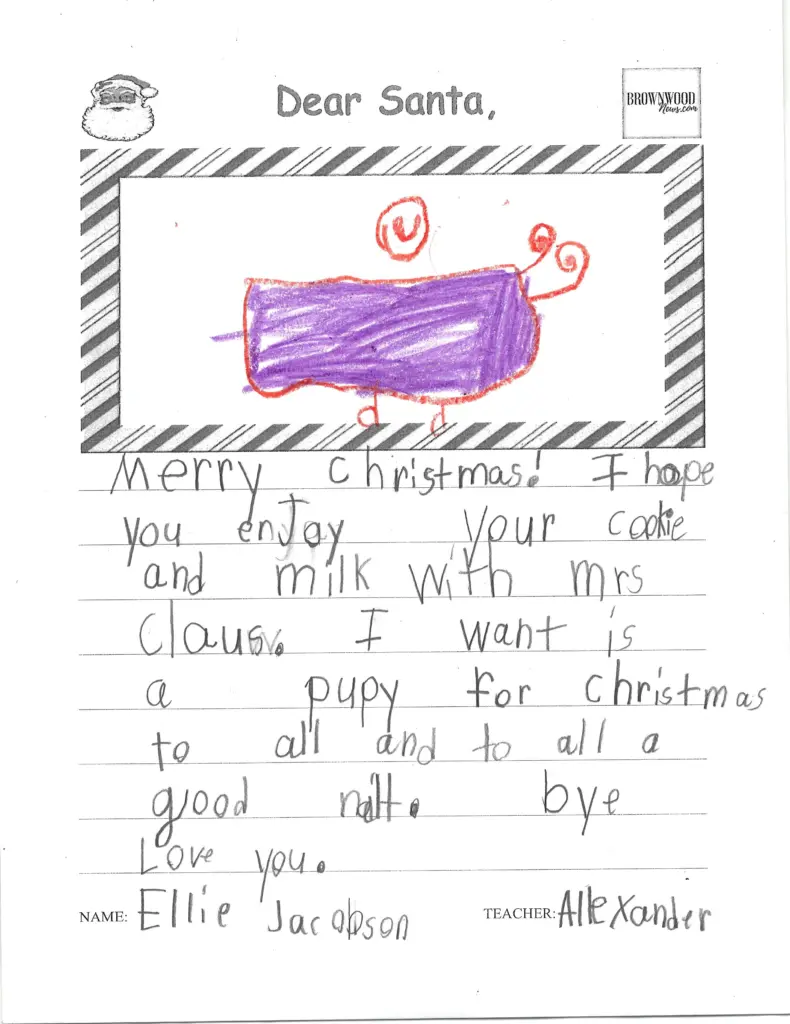 Dear Santa,
BROWNWOOD
News.com
Merry Christmas! I hope
you enjoy your cookie
and milk with mrs
Claus. I want is
a pupy for christmas
to all and to all a
good
bye
Love you.
NAME: Ellie Jacobson TEACHER: Allexander